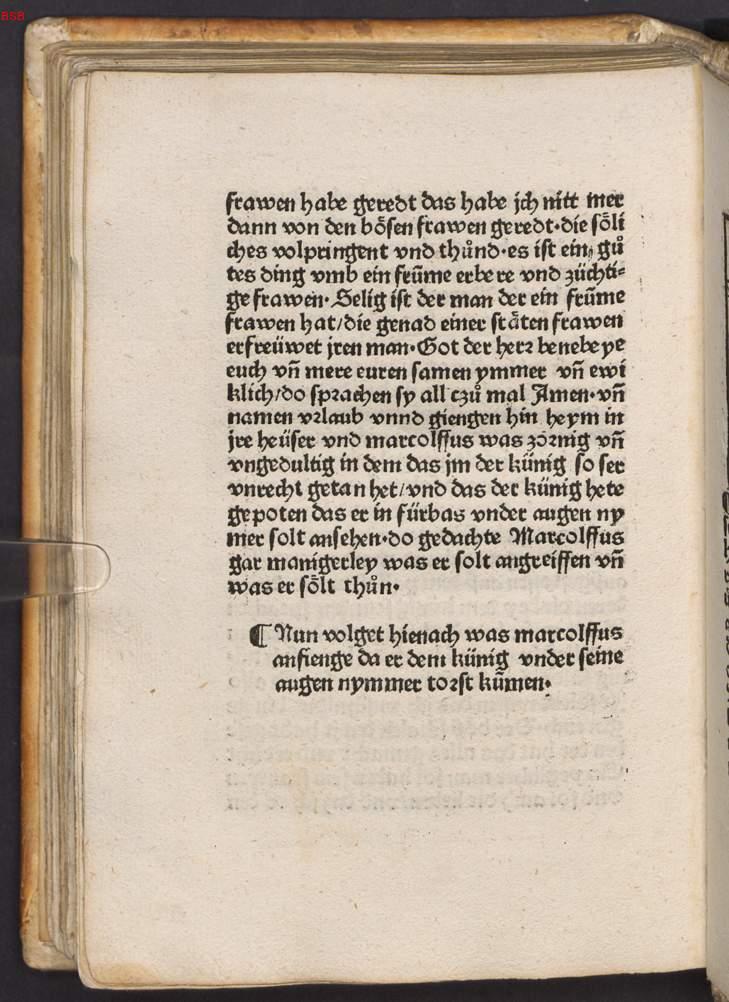 BSB
frawen habe geredt das habe jch nitt mer
dann von den bösen frawen geredt·die söli
ches volpringent vnd thůnd·es ist ein gů
tes ding vmb ein frūme erbere vnd züchti⸗
ge frawen·Selig ist der man der ein frūme
frawen hat/die genad einer stäten frawen
erfreüwet jren man·Got der herr benebeye
euch vñ mere euren samen ymmer vñ ewi
klich/do sprachen sy all czů mal Amen·vñ
namen vrlaub vnnd giengen hin heym in
jre heüser vnd marcolffus was zornig vñ
vngedultig in dem das jm der künig so ser
vnrecht getan het/vnd das der künig hete
gepoten das er in fürbas vnder augen ny
mer solt ansehen·do gedachte Marcolffus
gar manigerley was er solt angreiffen vñ
was er sölt thůn·
¶ Nun volget hienach was marcolffus
anfienge da er dem künig vnder seine
augen nymmer torst kūmen·